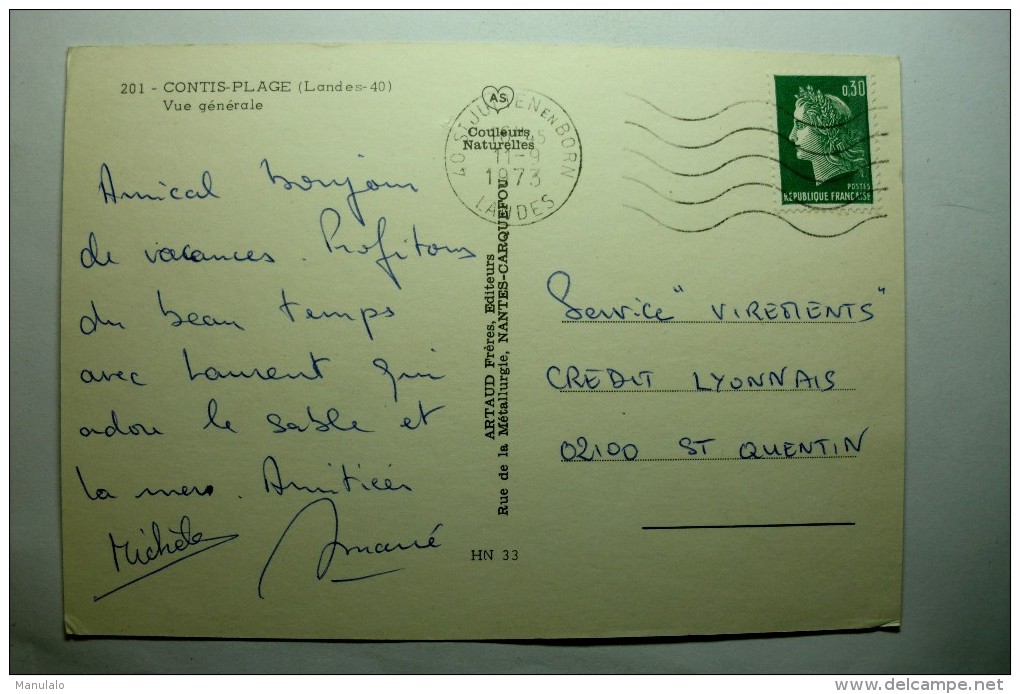 201 - CONTIS-PLAGE (Landes-40)
Vue générale
AS
Couleurs
Naturelles
40 ST JULIEN EN BORN
11-9
1973
LANDES
0,30
POSTES
RÉPUBLIQUE FRANÇAISE
Amical bonjour
de vacances. Profitons
du beau temps
avec Laurent qui
adore le sable et
la mer. Amitiés
Michèle
ARTAUD Frères, Editeurs
Rue de la Métallurgie, NANTES-CARQUEFOU
HN 33
Service "VIREMENTS"
CREDIT LYONNAIS
02100 ST QUENTIN
Manulalo
delcampe.net